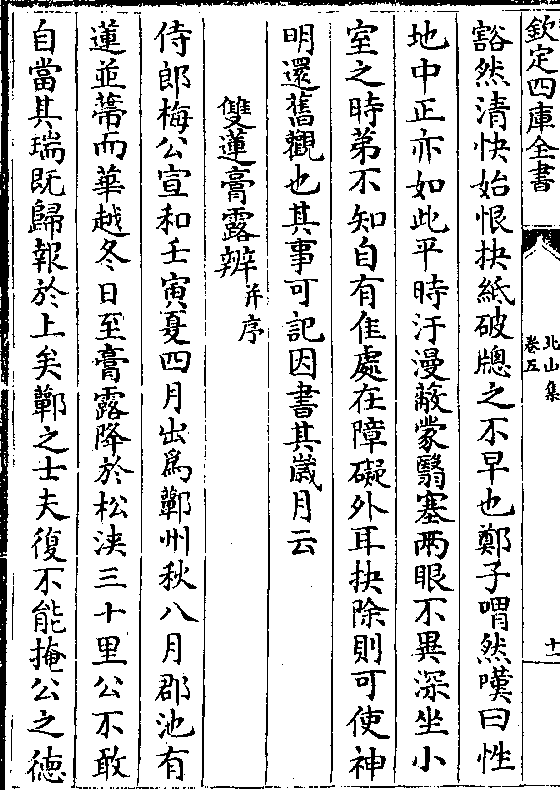 欽定四庫全書
北山集
卷五
十一
豁然清快始恨抉紙破牕之不早也鄭子喟然嘆曰性
地中正亦如此平時汙漫蔽蒙翳塞兩眼不異深坐小
室之時第不知自有佳處在障礙外耳抉除則可使神
明還舊觀也其事可記因書其歲月云
雙蓮膏露辨并序
侍郎梅公宣和壬寅夏四月出為鄿州秋八月郡池有
蓮並蔕而華越冬日至膏露降於松浹三十里公不敢
自當其瑞既歸報於上矣鄿之士夫復不能掩公之德